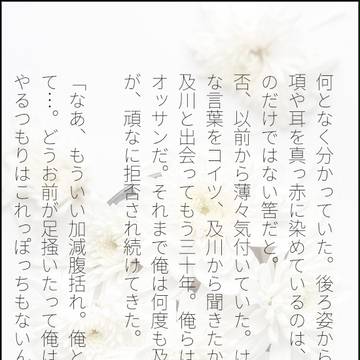 何となく分かっていた。後ろ姿から
項や耳を真っ赤に染めているのは、
のだけではない筈だと。
否、以前から薄々気付いていた。け
な言葉をコイツ、及川から聞きたか
及川と出会ってもう三十年。俺らは
オッサンだ。それまで俺は何度も及
が、頑なに拒否され続けてきた。
「なあ、もういい加減腹括れ。俺と
て…。どうお前が足掻いたって俺は
やるつもりはこれっぽっちもないん